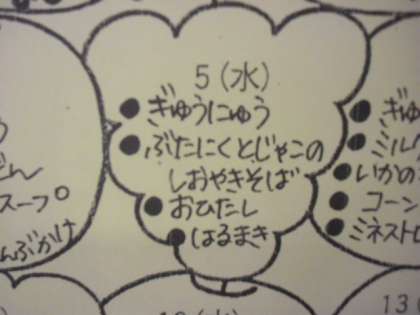 5(水)
●ぎゅうにゅう
●ぶたにくとじゃこの
しおやきそば
●おひたし
●はるまき
スープ
んぶかけ
●ぎゅ
●ミルク
●いかの
●コーン
●ミネストロ
13